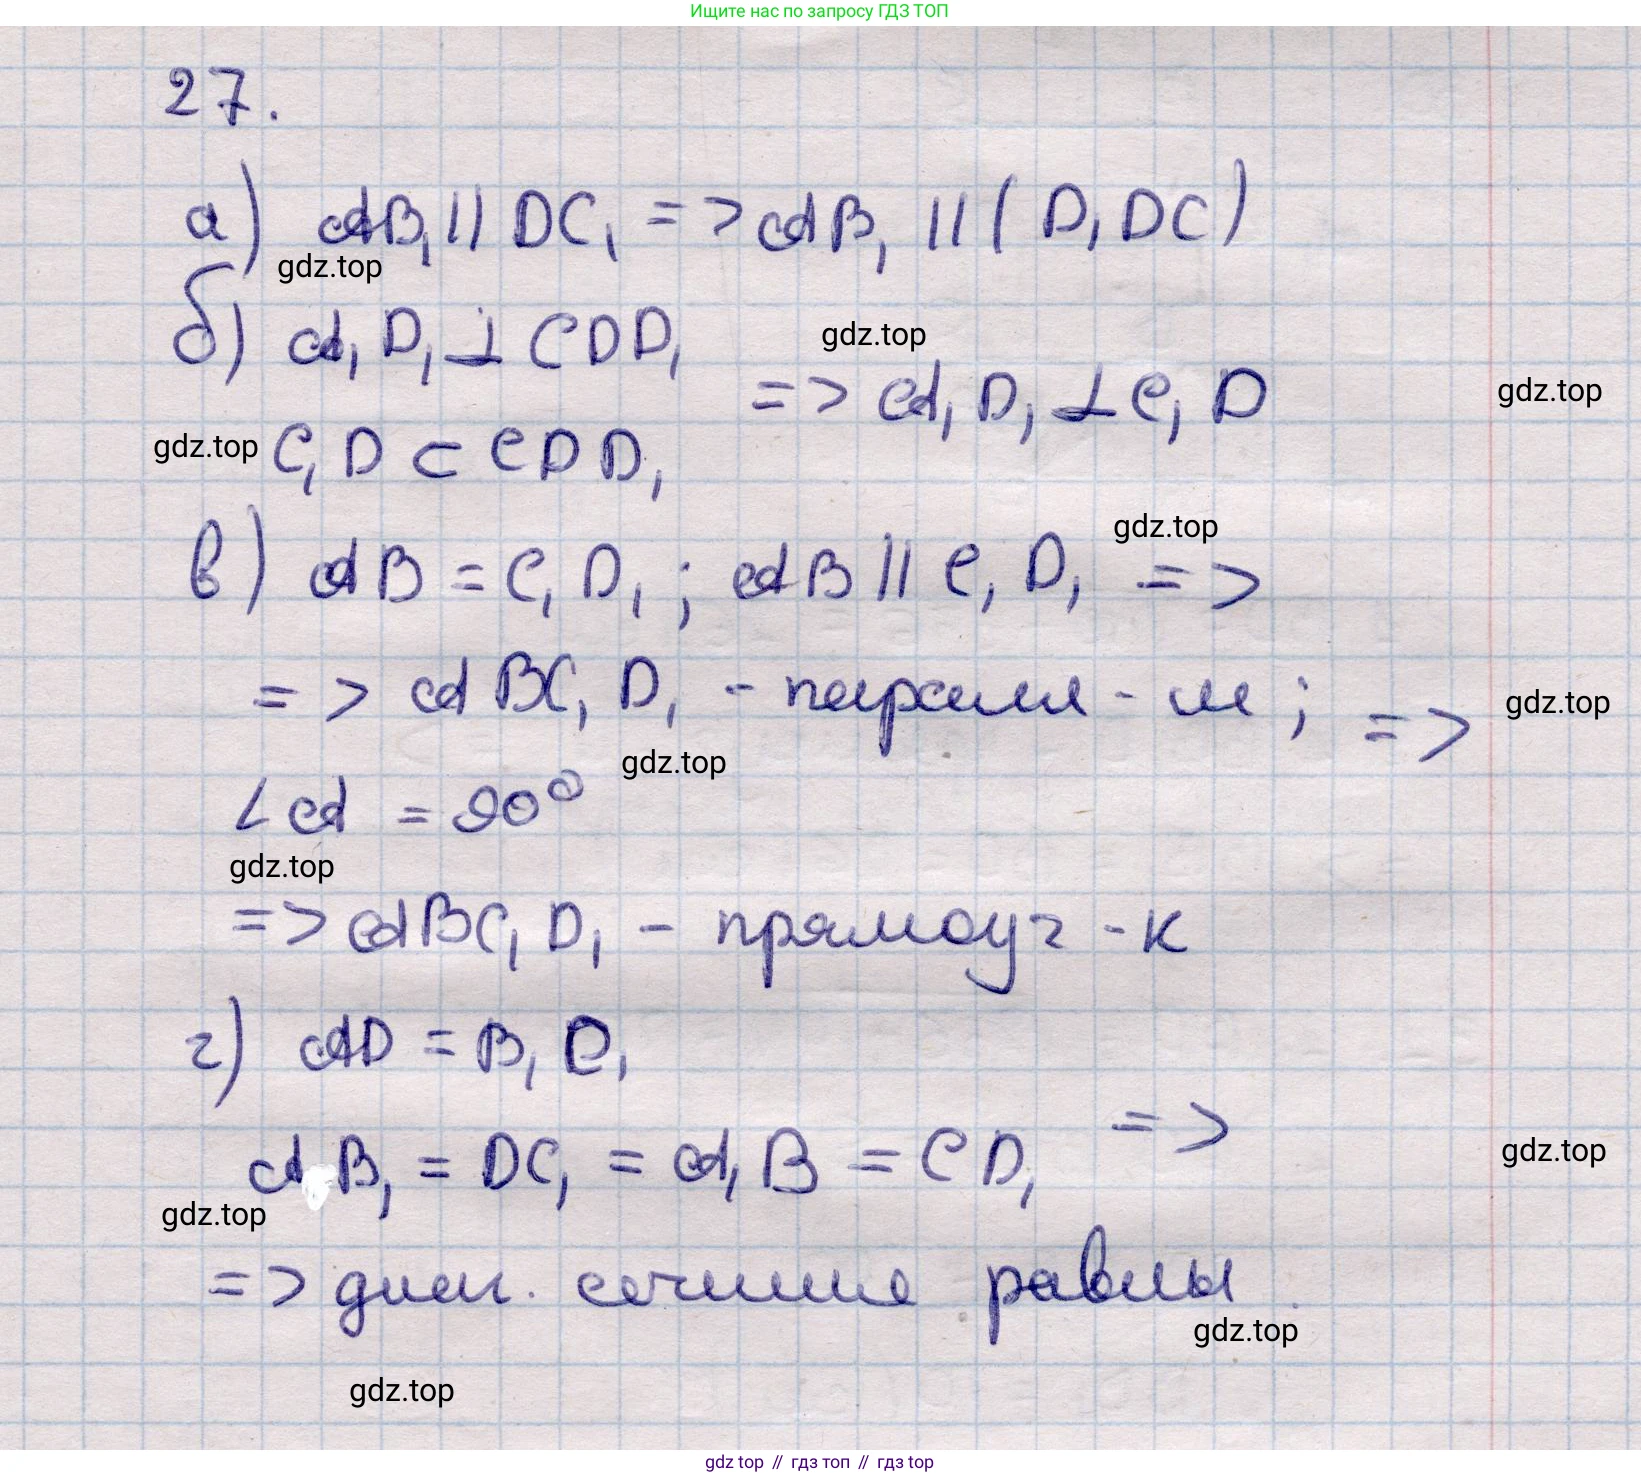 Ищите нас по запросу ГДЗ ТОП
27.
а) AB₁ || DC₁ => AB₁ || (D₁DC)
gdz.top
б) A₁D₁ ⊥ CDD₁
gdz.top
=> A₁D₁ ⊥ C₁D
gdz.top
gdz.top
C₁D ⊂ CDD₁
gdz.top
в) AB = C₁D₁; AB || C₁D₁ =>
=> ABC₁D₁ - паралл-м; =>
gdz.top
gdz.top
∠A = 90°
gdz.top
=> ABC₁D₁ - прямоуг-к
г) AD = B₁C₁
AB₁ = DC₁ = A₁B = CD₁ =>
gdz.top
gdz.top
=> диаг. сечения равны.
gdz.top
gdz.top
gdz.top // гдз топ // гдз top